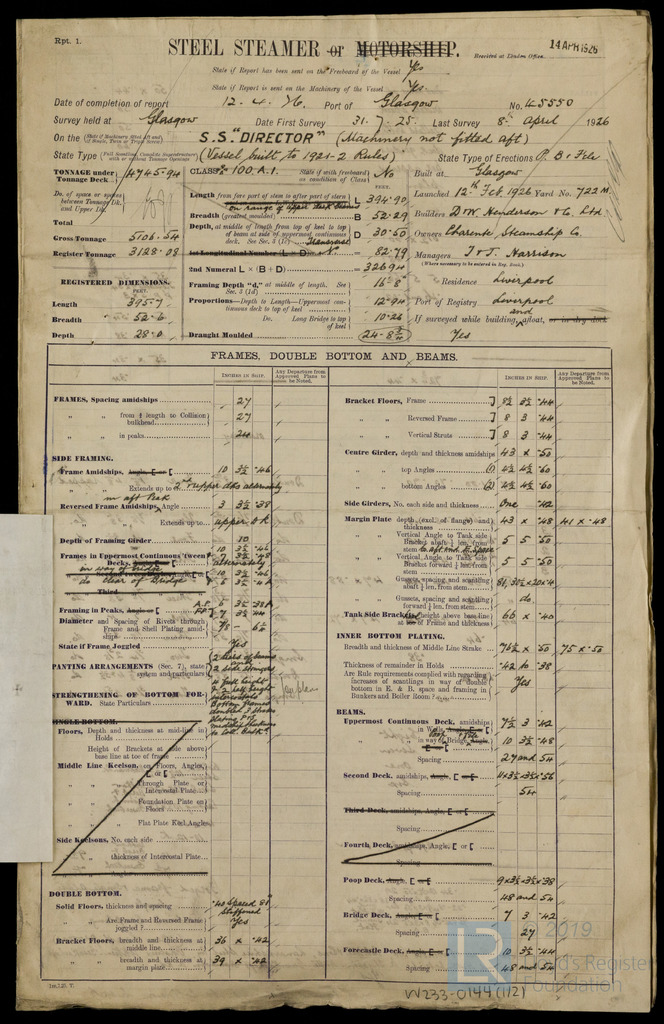 Rpt. 1.
14 APR 1926
STEEL STEAMER or MOTORSHIP.
Received at London Office
State if Report has been sent on the Freeboard of the Vessel Yes
State if Report is sent on the Machinery of the Vessel Yes
Date of completion of report 12.4.26. Port of Glasgow No. 45550
Survey held at Glasgow Date First Survey 31.7.25. Last Survey 8th April 1926
On the S.S. "DIRECTOR" (Machinery not fitted aft)
State Type (Vessel built to 1921-2 Rules) State Type of Erections P. B & Fcle
TONNAGE under Tonnage Deck 4745.94
CLASS 100.A.1. State if with freeboard as condition of Class No
Built at Glasgow
Launched 12th Feb. 1926 Yard No. 722 M
Builders D & W. Henderson & Co. Ltd.
Owners Charente Steamship Co.
Managers T & J. Harrison
(Where necessary to be entered in Reg. Book.)
Residence Liverpool
Port of Registry Liverpool
If surveyed while building, and afloat, or in dry dock Yes
Do. of space or spaces between Tonnage Dk. and Upper Dk.
Total
Gross Tonnage 5106.54
Register Tonnage 3128.08
REGISTERED DIMENSIONS.
FEET.
Length 395.7
Breadth 52.6
Depth 28.0
Length from fore part of stem to after part of stern on range of upper deck beams L 394.90
Breadth (greatest moulded) B 52.29
Depth, at middle of length, from top of keel to top of beams at side of uppermost continuous deck. See Sec. 3 (1c) D 30.50
1st Longitudinal Number (L × D) Transverse No. 82.79
2nd Numeral L × (B + D) = 32694
Framing Depth "d," at middle of length. See Sec. 3 (1d) 16'-8"
Proportions—Depth to Length—Uppermost continuous deck to top of keel 12.94
Do. Long Bridge to top of keel 10.26
Draught Moulded 24-8¾
FRAMES, DOUBLE BOTTOM AND BEAMS.
INCHES IN SHIP.
Any Departure from Approved Plans to be Noted.
FRAMES, Spacing amidships 27
" " from ⅗ length to Collision bulkhead 27
" " in peaks 24
SIDE FRAMING.
Frame Amidships, Angle, E or [ 10 3½ .46
" " Extends up to 2nd & upper dks alternately
in aft Peak
Reversed Frame Amidships, Angle 3 3½ .38
" " Extends up to upper Dk
Depth of Framing Girder 10
Frames in Uppermost Continuous 'tween Decks, Angle, E or [
in way of bridge
do clear of Bridge
Third
Framing in Peaks, Angle or [
Diameter and Spacing of Rivets through Frame and Shell Plating amidships 7/8 6⅛
State if Frame Joggled Yes
PANTING ARRANGEMENTS (Sec. 7), state system and particulars
STRENGTHENING OF BOTTOM FORWARD. State Particulars
SINGLE BOTTOM.
Floors, Depth and thickness at mid-line in Holds
Height of Brackets at side above base line at toe of frame
Middle Line Keelson, on Floors, Angles, E or [
" " Through Plate or Intercostal Plate
" " Foundation Plate on Floors
" " Flat Plate Keel Angles
Side Keelsons, No. each side
" thickness of Intercostal Plate
" Angles
DOUBLE BOTTOM.
Solid Floors, thickness and spacing .40 Spaced 81" Stiffened
" " Are Frame and Reversed Frame joggled? Yes
Bracket Floors, breadth and thickness at middle line 36 × .42
" " breadth and thickness at margin plate 39 × .42
Bracket Floors, Frame 8½ 3½ .44
" " Reversed Frame 8 3 .44
" " Vertical Struts 8 3 .44
Centre Girder, depth and thickness amidships 43 × .50
" " top Angles (2) 4½ 4½ .60
" " bottom Angles (2) 4½ 4½ .60
Side Girders, No. each side and thickness One .42
Margin Plate depth (excl. of flange) and thickness 43 × .48 41 × .48
" " Vertical Angle to Tank side Bracket abaft ¼ len. from stem 5 5 .50
" " Vertical Angle to Tank side Bracket forward ¼ len. from stem 5 5 .50
" " Gussets, spacing and scantling abaft ¼ len. from stem 81, 3½×20×.4
" " Gussets, spacing and scantling forward ¼ len. from stem do
Tank Side Brackets, height above base line at toe of Frame and thickness 66 × .40
INNER BOTTOM PLATING.
Breadth and thickness of Middle Line Strake 76½ × .50 75 × .50
Thickness of remainder in Holds .42 to .38
Are Rule requirements complied with regarding increases of scantlings in way of double bottom in E. & B. space and framing in Bunkers and Boiler Room? Yes
BEAMS.
Uppermost Continuous Deck, amidships 7½ 3 .42
in way of Bridge 10 3½ .48
Spacing 27 and 54
Second Deck, amidships, Angle, E or [ 11×3½×3½×.56
Spacing 54
Third Deck, amidships, Angle, E or [
Spacing
Fourth Deck, amidships, Angle, E or [
Spacing
Poop Deck, Angle, E or [ 9×3½×3½×.38
Spacing 48 and 54
Bridge Deck, Angle, E or [ 7 3 .42
Spacing 27
Forecastle Deck, Angle, E or [ 10 3½ .44
Spacing 48 and 54
W233-0144(1/2)
LR
2019
Lloyd's Register
Foundation